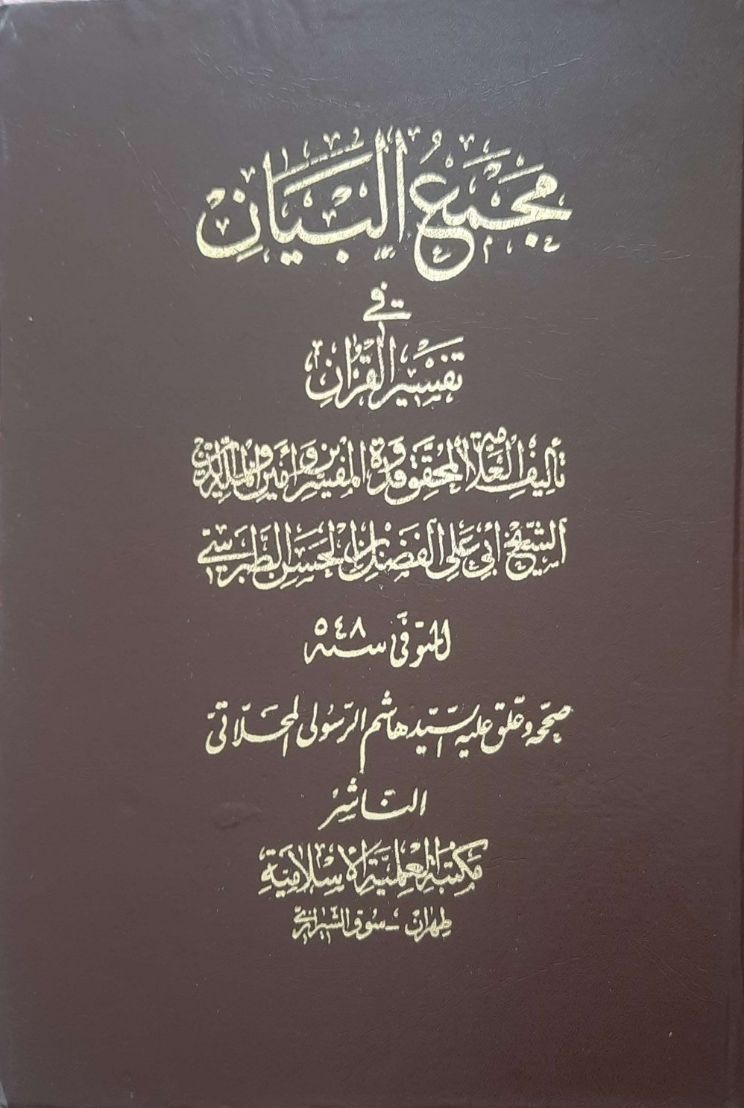 مَجمَعُ البَيَانِ
في
تَفسيرِ القُرآنِ
تأليف العلامة المحقق قدوة المفسرين وأمين
الشيخ أبي علي الفضل بن الحسن الطبرسي
المتوفى سنه ٥٤٨
صححه وعلق عليه السيد هاشم الرسولي المحلاتي
الناشر
مكتبة العلمية الاسلامية
طهران - سوق الشيرازي